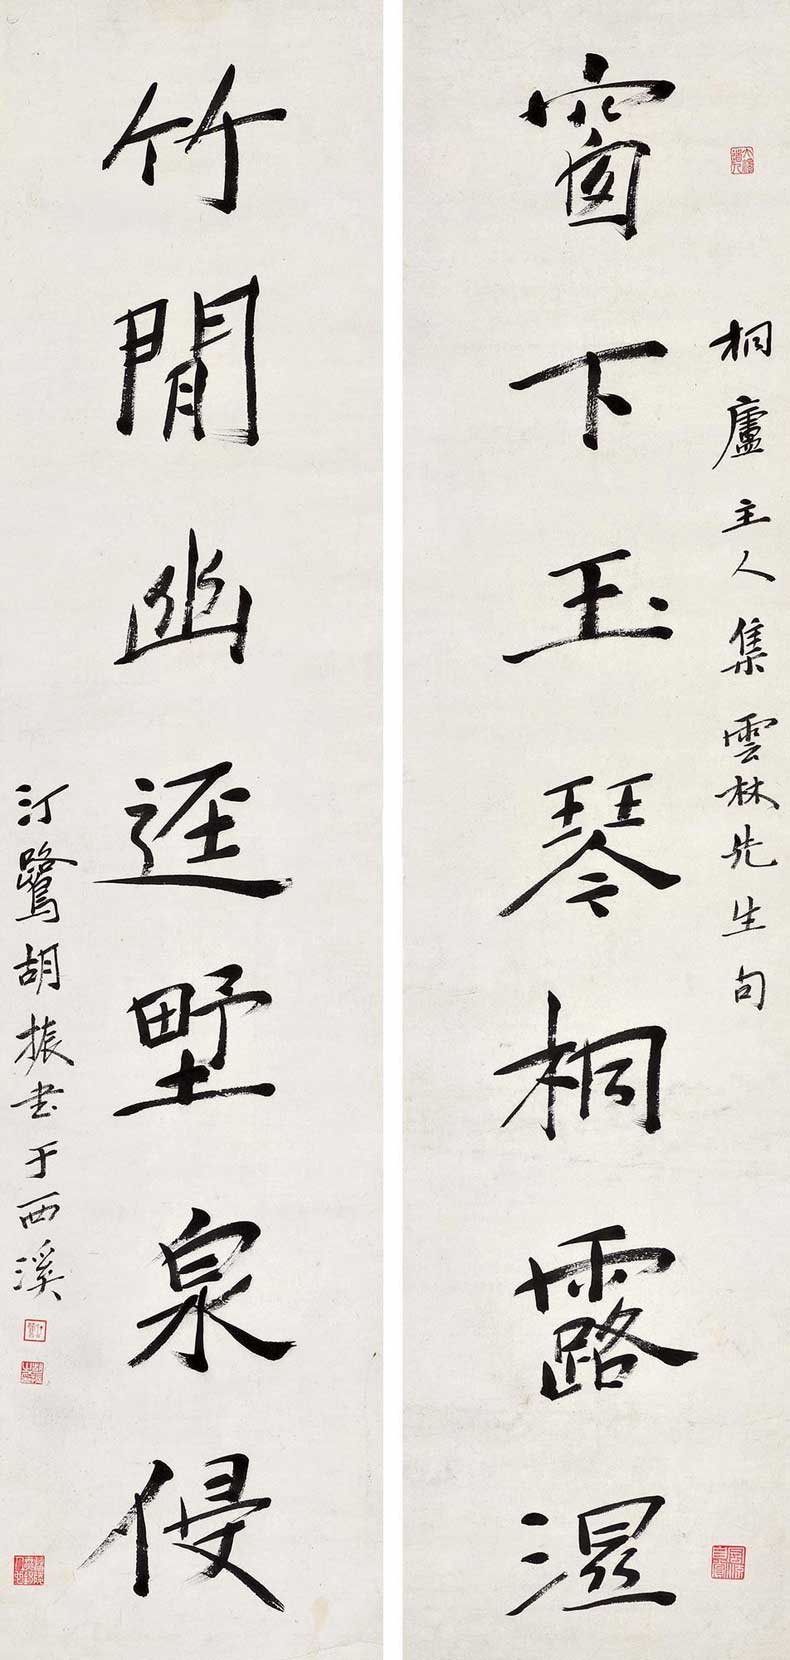 桐廬主人集雲林先生句
窗下玉琴桐露濕
竹間幽逕墅泉侵
汀鷺胡振書于西溪